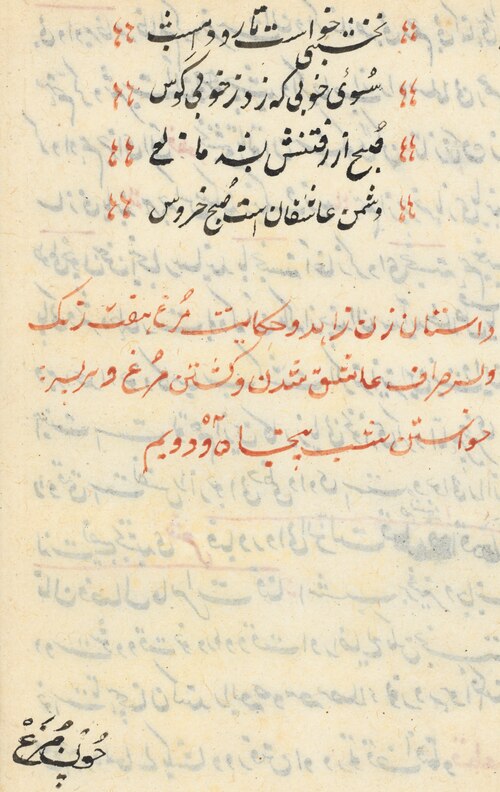 نخشبی خواست تا رود امشب
سوئ خوبی که زد ز خوبی کوس
صبح از رفتنش بشد مانع
دشمن عاشقان است صبح خروس
داستان زن زاهد و حکایت مرغ هفت رنک
و پسر صراف عاشق شدن و کشتن مرغ و سر پسر
خواستن شب پنجاه و دویم
چون مرغ